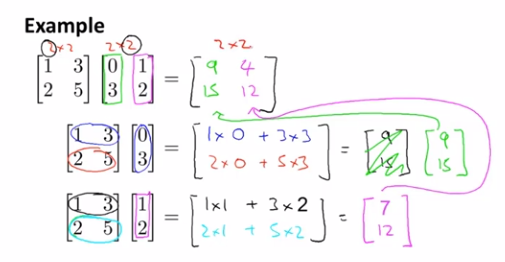 Example
2×2 2×2 2×2
[1 3; 2 5] [0 1; 3 2] = [9 4; 15 12]
[1 3; 2 5] [0; 3] = [1×0 + 3×3; 2×0 + 5×3] = [9; 15] [9; 15]
[1 3; 2 5] [1; 2] = [1×1 + 3×2; 2×1 + 5×2] = [7; 12]